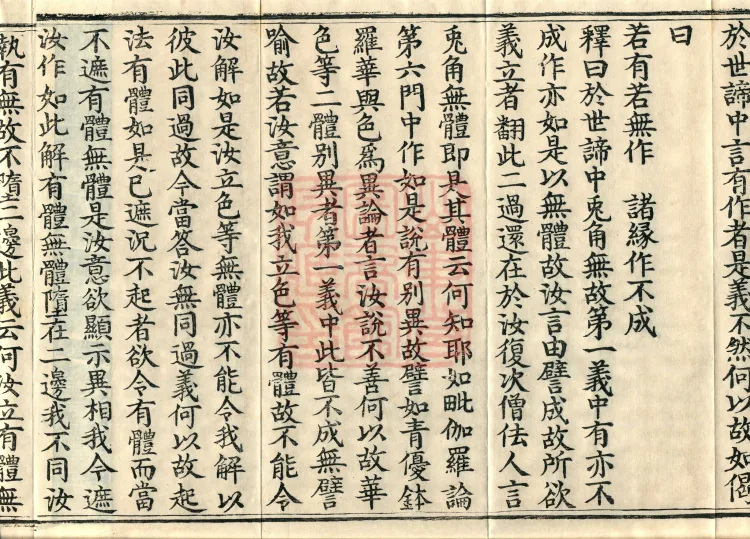 於世諦中言有作者是義不然何以故如偈
曰
若有若無作　諸縁作不成
釋曰於世諦中兎角無故第一義中有亦不
成作亦如是以無體故汝言由譬成故所欲
義立者翻此二過還在於汝復次僧佉人言
兎角無體即是其體云何知耶如毗伽羅論
第六門中作如是說有別異故譬如青優鉢
羅華與色爲異論者言汝說不善何以故華
色等二體別異者第一義中此皆不成無譬
喻故若汝意謂如我立色等有體故不能令
汝解如是汝立色等無體亦不能令我解以
彼此同過故今當答汝無同過義何以故起
法有體如是已遮況不起者欲令有體而當
不遮有體無體是汝意欲顯示異相我今遮
汝作如此解有體無體墮在二邊我不同汝
執有無故不墮二邊此義云何汝立有體無